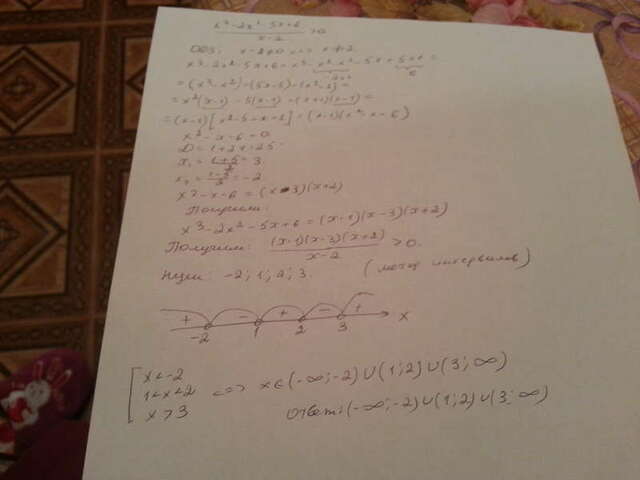 x³-2x²-5x+6 / x-2 >0
ОДЗ: x-2≠0 <=> x≠2
x³-2x²-5x+6 = x³-x²-x²-5x+5+1 =
= (x³-x²)-(5x-5)-(x²-1) =
= x²(x-1)-5(x-1)-(x+1)(x-1) =
= (x-1)[x²-5-x-1] = (x-1)(x²-x-6)
x²-x-6=0
D=1+24=25
x₁ = 1+5 / 2 = 3
x₂ = 1-5 / 2 = -2
x²-x-6 = (x-3)(x+2)
Получили:
x³-2x²-5x+6 = (x-1)(x-3)(x+2)
Получили: (x-1)(x-3)(x+2) / x-2 >0.
Нули: -2; 1; 2; 3. (метод интервалов)
+ - + - +
-2 1 2 3 x
x<-2
1<x<2 <=> x∈(-∞;-2)∪(1;2)∪(3;∞)
x>3 Ответ: (-∞;-2)∪(1;2)∪(3;∞)